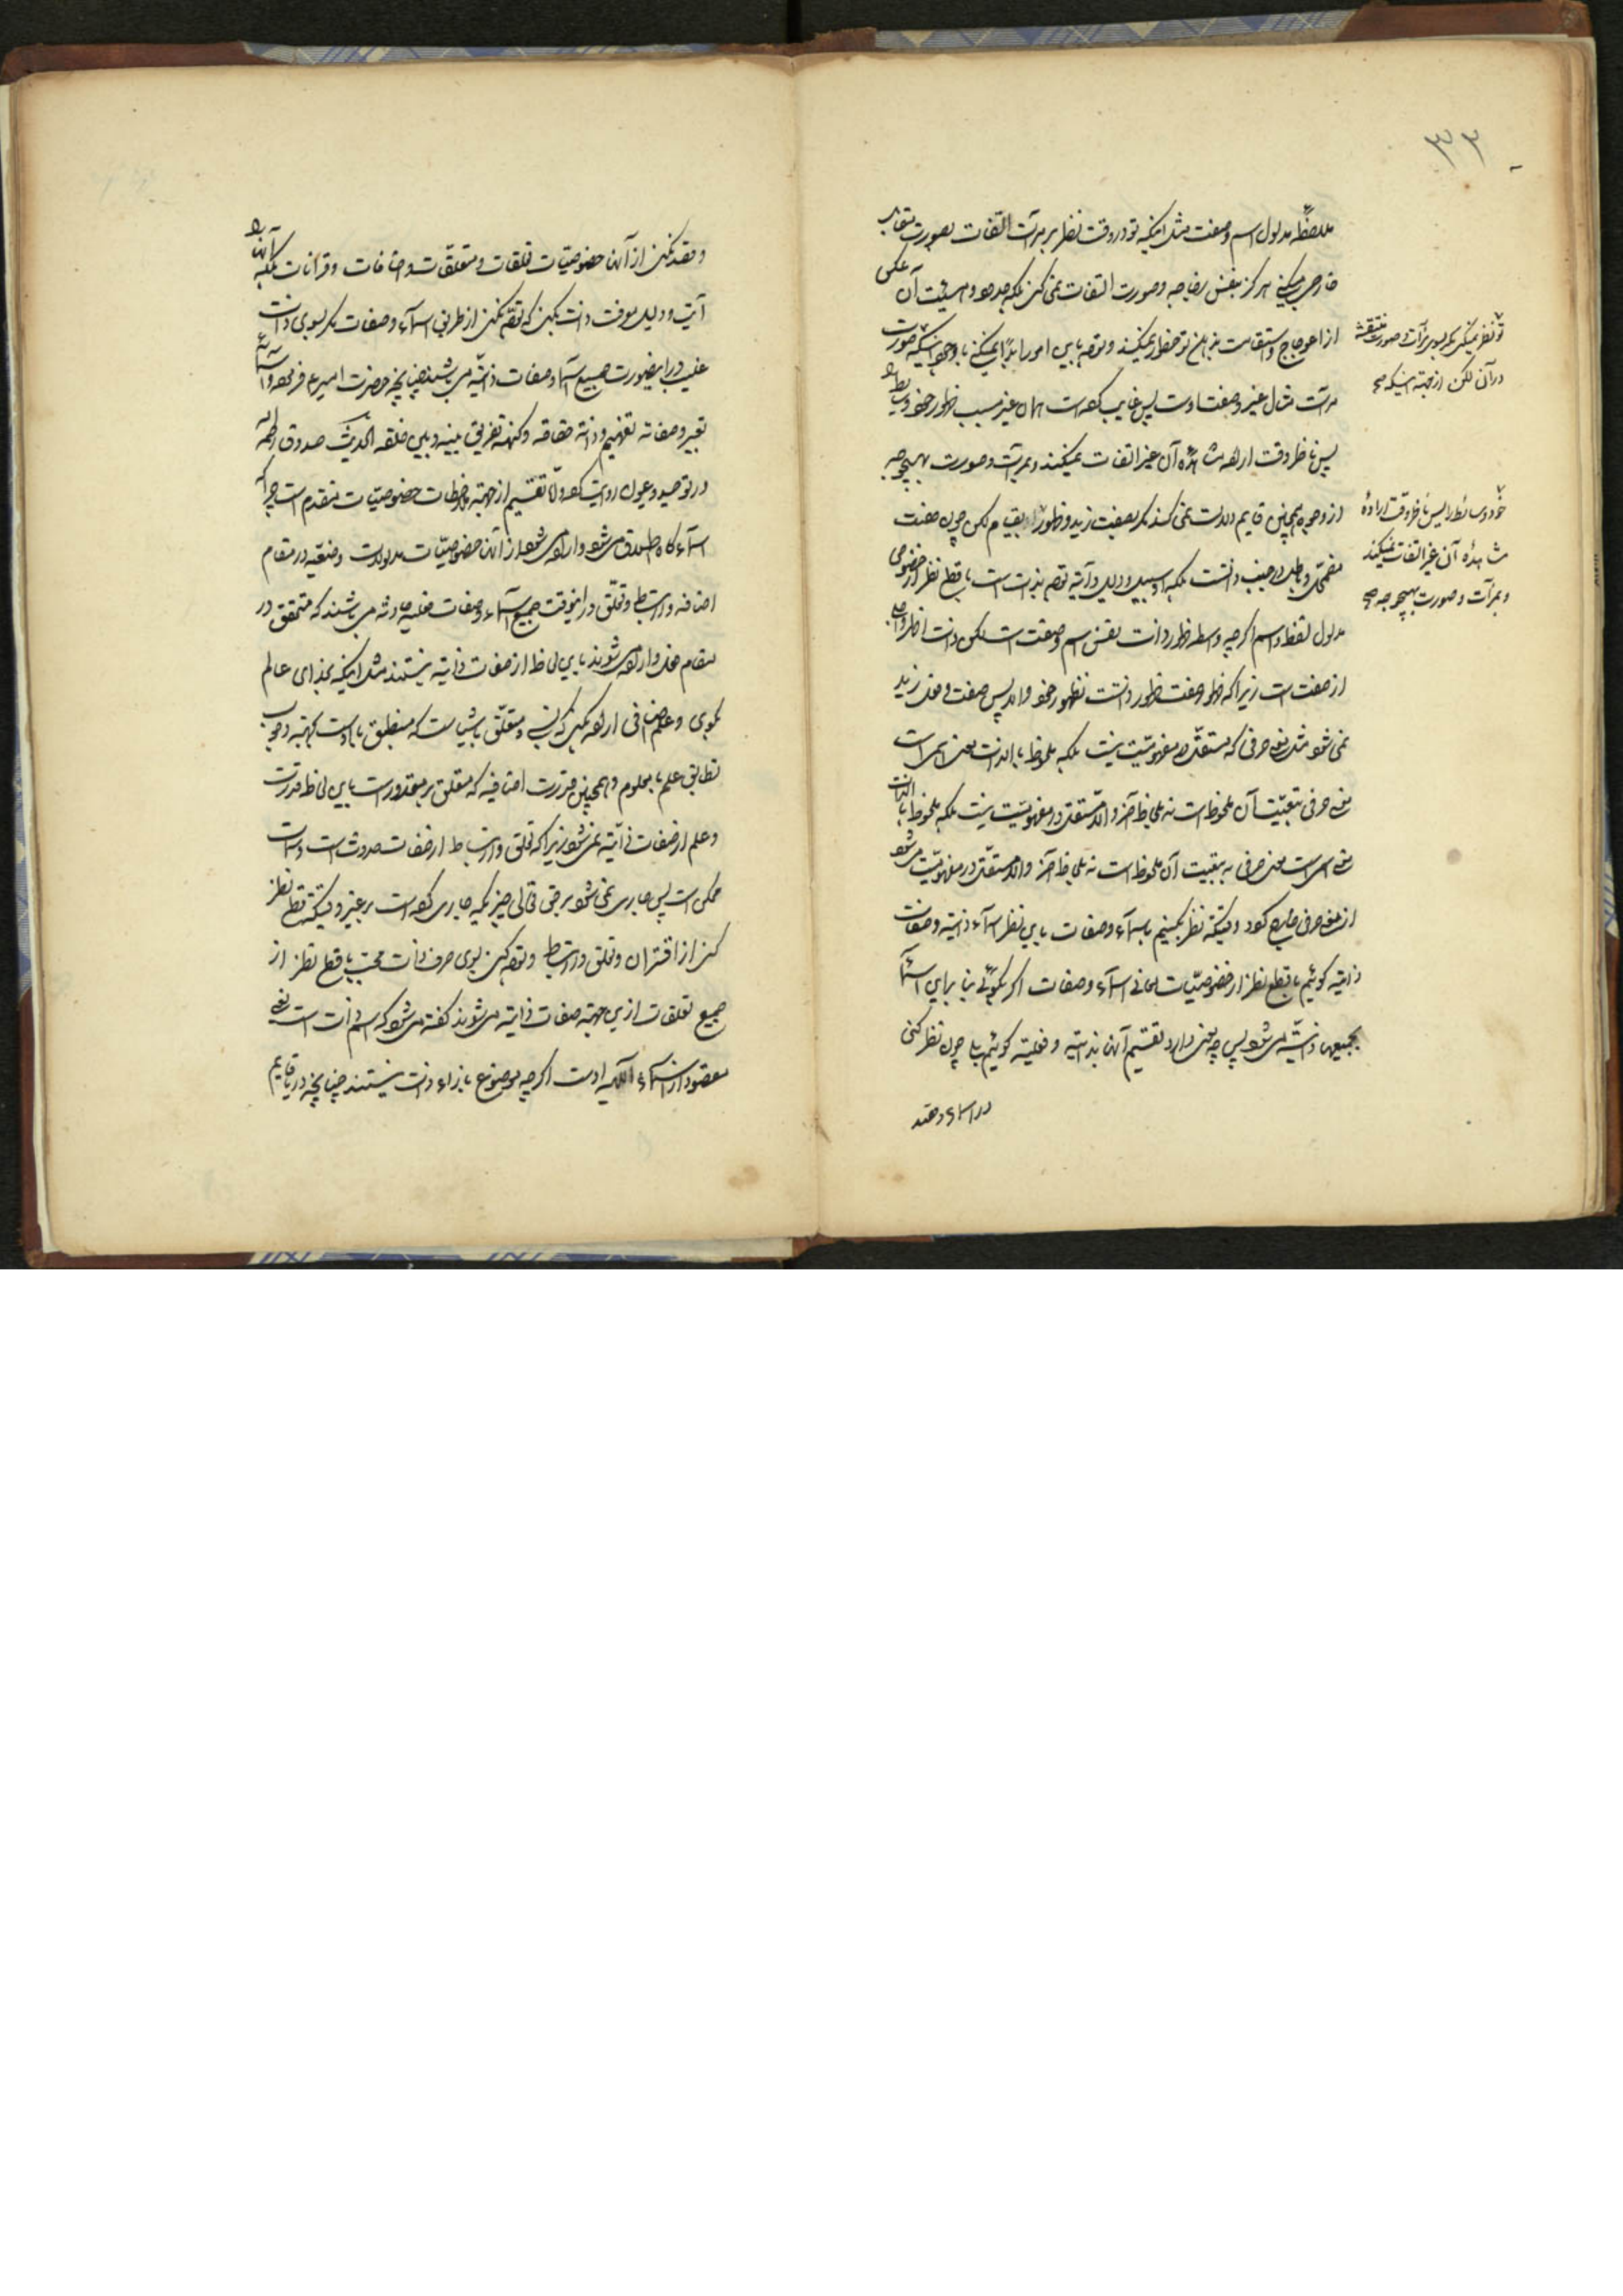 ۳۳
ملاحظهٔ مدلول اسم و صفت مثل اینکه تو در وقت نظر بر مرآت التفات بصورت مقابل
خارجی میکنی هرگز بنفس زجاجه و صورت التفات نمی‌کنی بلکه آن
از اعوجاج و استقامت بذهن تو خطور نمیکند و توجه باین امور ابداً نمیکنی با وجود اینکه صورت
مرآت مثال غیر و صفت اوست پس غایب کرده است همان غیر بسبب ظهور خود وسایط را
پس ناظر وقت ارادهٔ مشاهدهٔ آن غیر التفات نمیکند و بمرآت و صورت بهیچوجه
از وجوه همچنین قایم دلالت نمی‌کند مگر بصفت زید و ظهور او بقیام لکن چون صفت
مضمحل و باطل در جنب ذاتست بلکه او سبیل و دلیل و آیه توجه بذات است با قطع نظر از خصوص
مدلول لفظ و اسم اگرچه واسطه ظهور ذات نفس اسم و صفت است لکن ذات اظهر و اجل
از صفت است زیرا که ظهور صفت ظهور ذاتست بظهور خود و الا پس صفت و فعل زید
نمی‌شود مثل معنی حرفی که مستقل در مفهومیت نیست بلکه ملحوظ بالذات معنی اسمی است
معنی حرفی بتبعیت آن ملحوظ است نه بلحاظ آخر و الا مستقل در مفهومیت نیست بلکه ملحوظ بالذات
معنی اسمی است معنی حرفی به تبعیت آن ملحوظ است نه بلحاظ آخر و الا مستقل در مفهومیت می‌شود
از معنی حرفی خارج گردد وقتیکه نظر بکنیم باسمآء و صفات باین نظر اسمآء ذاتیه و صفات
ذاتیه گوئیم با قطع نظر از خصوصیات معانی اسمآء و صفات اگر بگوئی بنا براین اسمآء
بجمیعها ذاتیه می‌شود پس چه معنی دارد تقسیم آنها بذاتیه و فعلیه گوئیم بلی چون نظر کنی
در اسمآء و صفات
تو نظر نمیکنی مگر بسوی مرآت و صورت منتقشه
در آن لکن از جهة اینکه صح
خود وسائط را پس ناظر وقت ارادهٔ
مشاهدهٔ آن غیر التفات نمیکند
و بمرآت و صورت بهیچوجه صح
و قصد نکنی از آنها خصوصیات تعلقات و متعلقات و اضافات و قرانات بلکه آنها را
آیت و دلیل معرفت ذات بکنی که توجه نکنی از طریق اسمآء و صفات مگر بسوی ذات
غیب در اینصورت جمیع اسمآء و صفات ذاتیه می‌باشند چنانچه حضرت امیر ع فرموده و اسمائه
تعبیر و صفاته تفهیم و ذاته حقاقه و کنهه تفریق بینه و بین خلقه الحدیث صدوق رحمه الله
در توحید و عیون روایت کرده و الا تقسیم از جهة ملاحظات خصوصیات متقدم است چرا که
اسمآء گاه اطلاق می‌شود و اراده می‌شود از آنها خصوصیات مدلولات وضعیه در مقام
اضافه و ارتباط و تعلق در اینوقت جمیع اسمآء و صفات فعلیه حادثه می‌باشند که متحقق در
مقام فعل و اراده می‌شوند باین لحاظ از صفات ذاتیه نیستند مثل اینکه بخدای عالم
بگوی و علم اضافی اراده بکنی که نسب و متعلق باشیاست که منطبق با اوست بجهة وجوب
تطابق علم با معلوم و همچنین قدرت اضافیه که متعلق بر مقدور است باین لحاظ قدرت
و علم از صفات ذاتیه نمی‌شود زیرا که تعلق و ارتباط از صفات حدوث است
ممکن است پس جاری نمی‌شود بر حق تعالی چیزیکه جاری کرده است بر غیر وقتیکه قطع نظر
کنی از اقتران و تعلق و ارتباط و توجه کنی بسوی صرف ذات بحت با قطع نظر از
جمیع تعلقات از این جهة صفات ذاتیه می‌شوند گفته می‌شود که اسم ذات است یعنی
مقصود از اسمآء الهیه اوست اگرچه موضوع بازاء ذات نیستند چنانچه در یا قایم